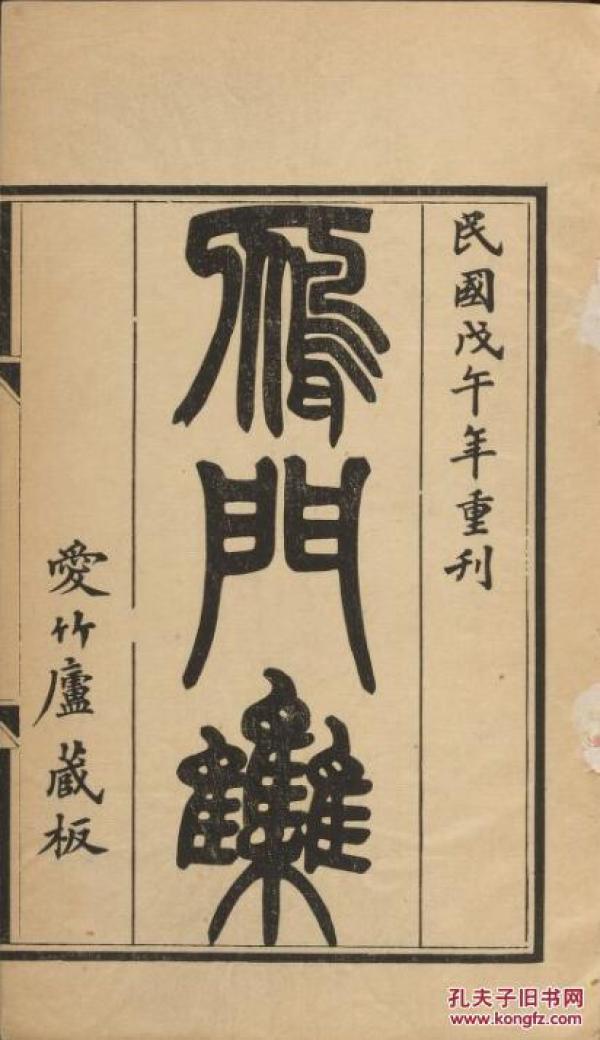 民國戊午年重刊
雁門集
愛竹廬藏板
孔夫子旧书网
www.kongfz.com